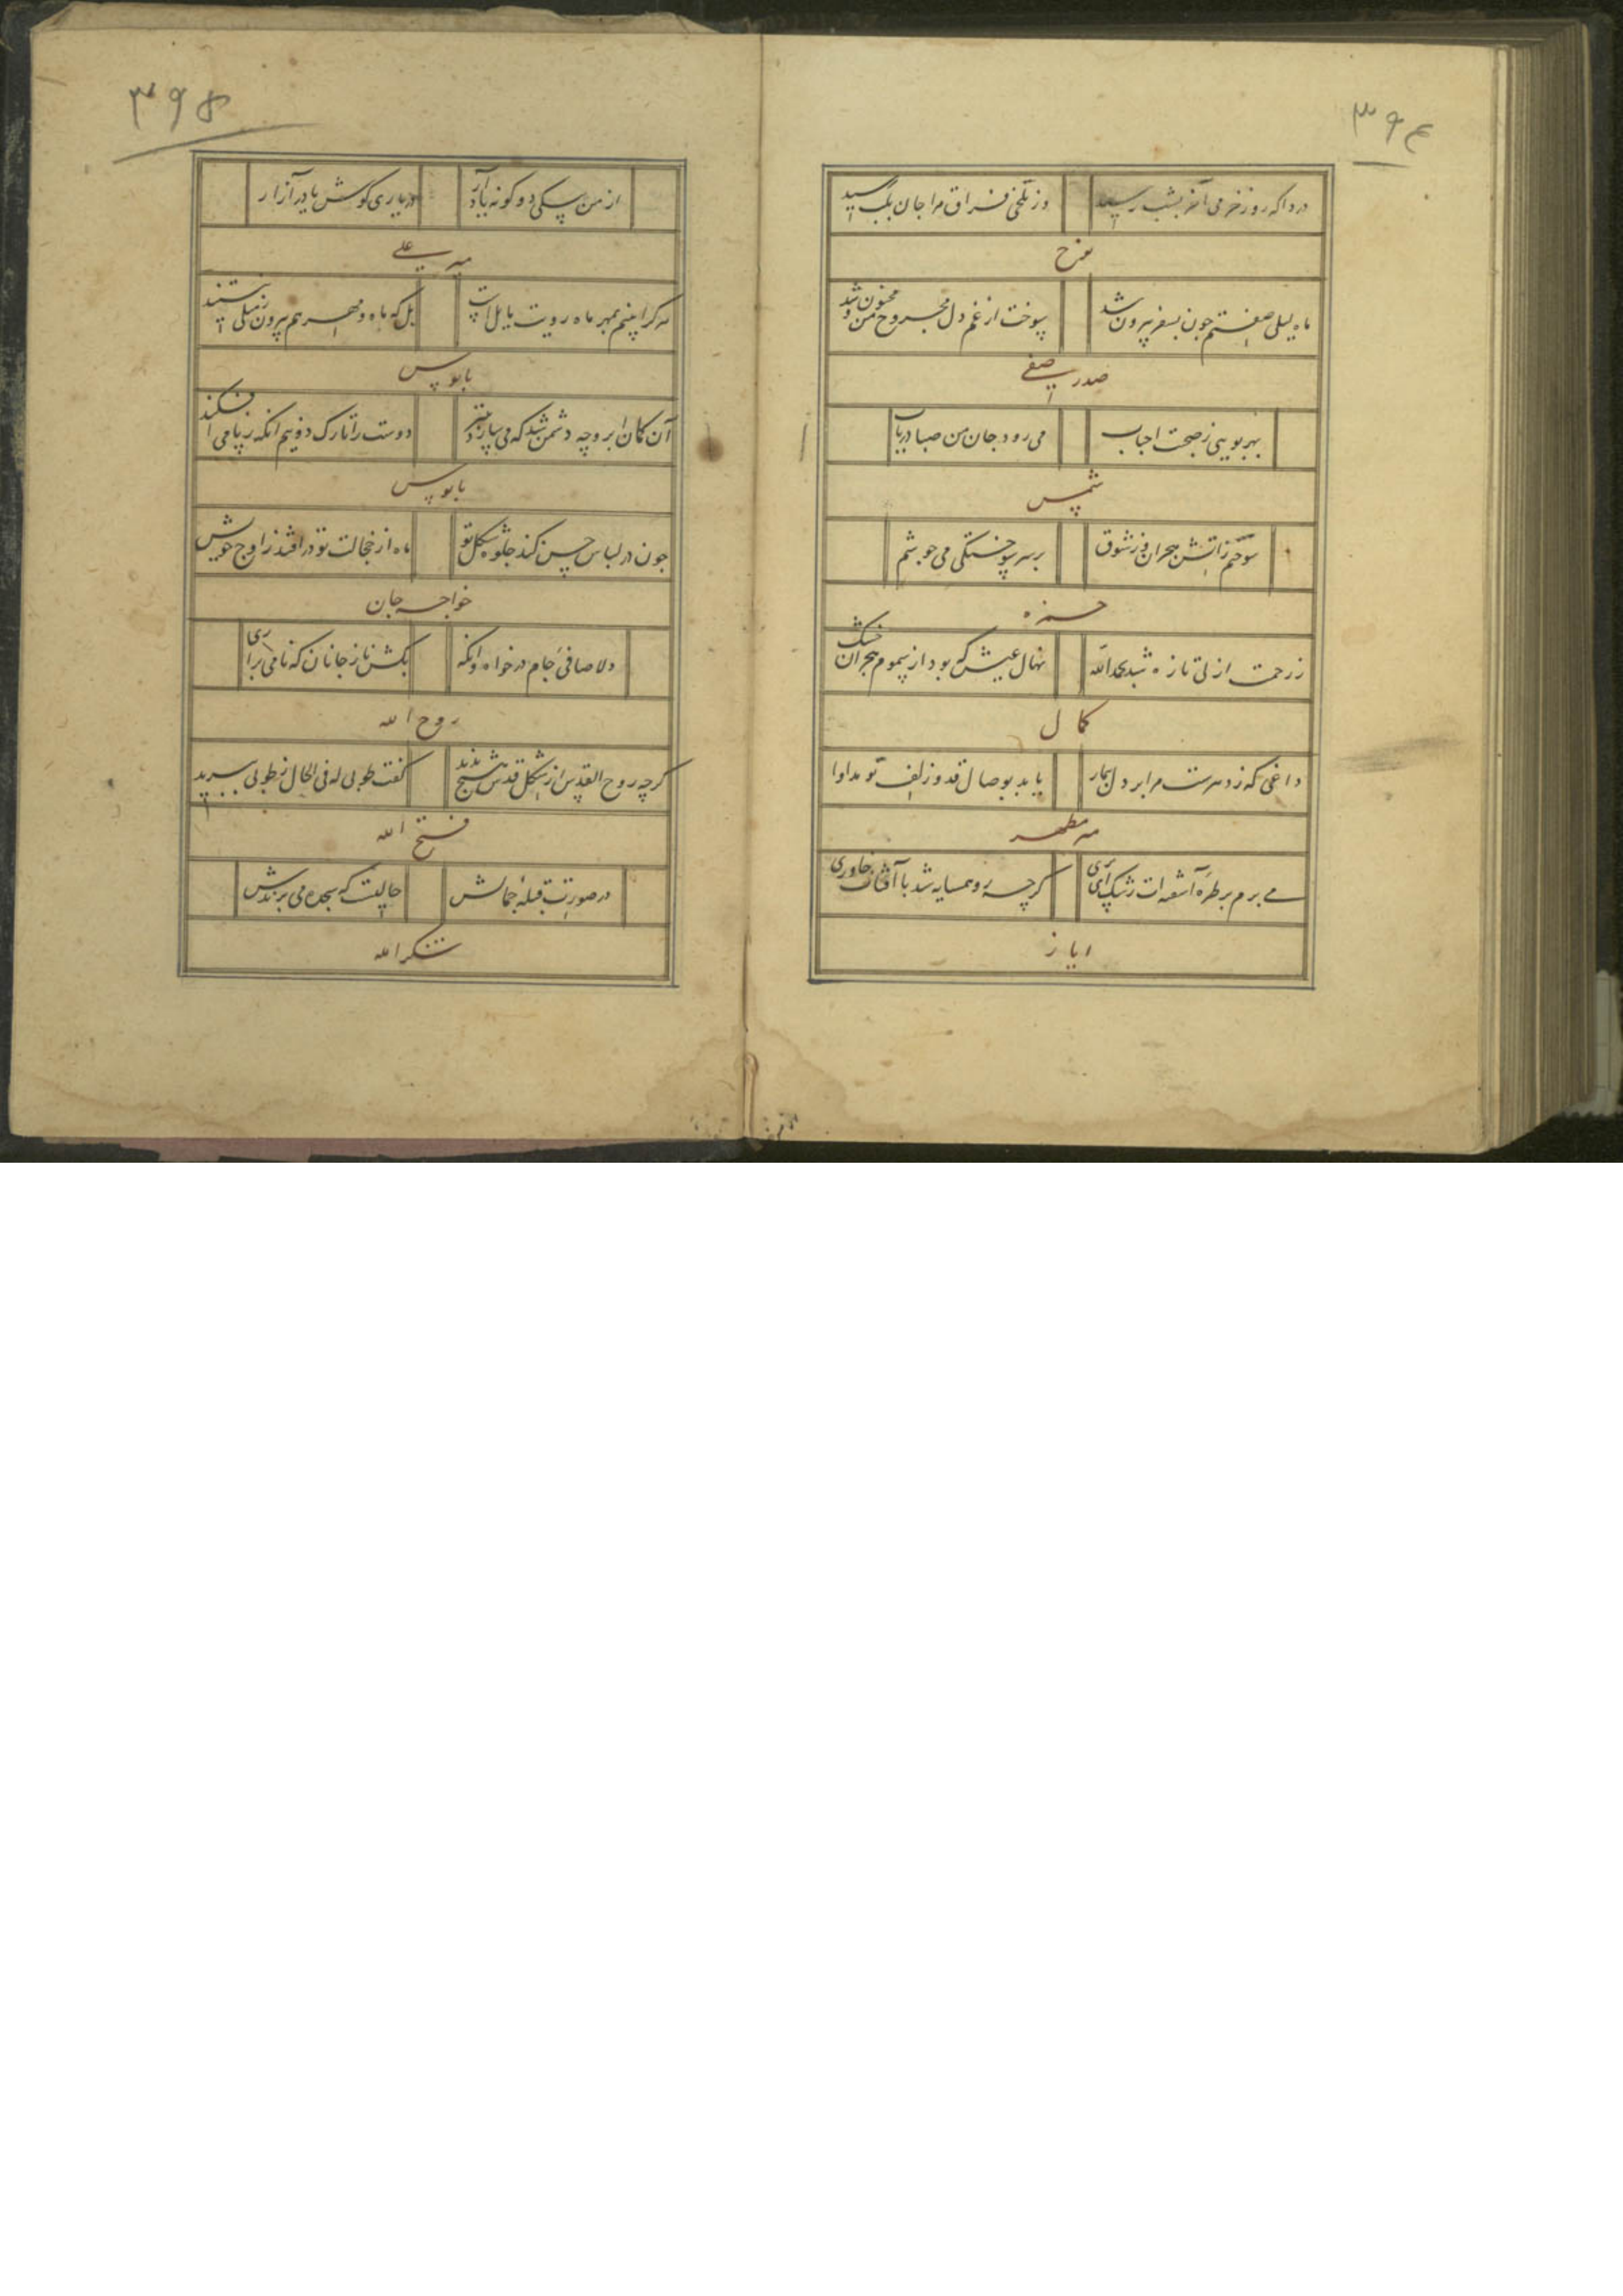 ۳۹۴
درداکه روز خرمی آخر بشب رسید
وز تلخی فراق مرا جان بلب رسید
فرح
ماه لیلی صفتم چون بسفر بیرون شد
سوخت از غم دل مجروح من و مجنون شد
صدر صفی
بهر بویی ز صحبت احباب
می رود جان من صبا دریاب
شمس
سوختم ز اتش هجران وز شوق
بر سر سوختگی می جوشم
حمزه
ز رحمت ازلی تازه شد بحمدالله
نهال عیش که بود از سموم هجران خشک
کمال
داغی که ز دردست مرا بر دل بیمار
یابد بوصال قد و زلف تو مداوا
مطهر
می برم بر طره آشفته ات رشک ای پری
کرچه رو همسایه شد با آفتاب خاوری
ایاز
۳۹۵
از من سکی دو کونه یاد آر
در یاری کوش یا در آزار
میر علی
هر کرا بینم بمهر ماه رویت مایل است
بل که ماه و مهر هم بیرون ز میلی نیستند
بابوس
آن کمان ابرو چه دشمن شد که می سازد بتیر
دوست را تارک دو نیم انکه ز پا می افکند
بابوس
چون در لباس حسن کند جلوه شکل تو
ماه از خجالت تو در افتد ز اوج خویش
خواجه جان
دلا صافی جام در خواه وانکه
بکش ناز جانان که نامی براری
روح الله
کرچه روح القدس از شکل قدش شبح ندید
کفت طوبی له فی الحال ز طوبی ببرید
فتح الله
در صورت قبله جمالش
حالیست که سجده می برندش
شکرالله